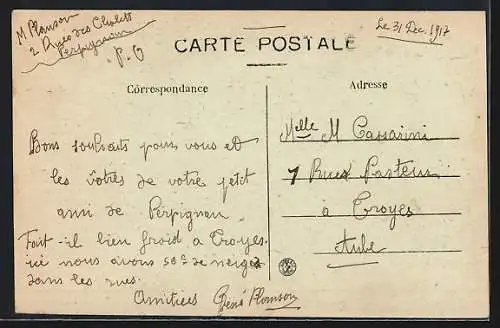 M Plouson
2 Rue des
Perpignan
P.O
Le 31 Dec. 1917
CARTE POSTALE
Correspondance
Adresse
Bons souhaits pour vous et
les vôtres de votre petit
ami de Perpignan.
Fait-il bien froid a Troyes.
ici nous avons 50c de neige
dans les rues.
Amitiées René
Melle M Cassarini
7 Rue Pasteur
à Troyes
Aube